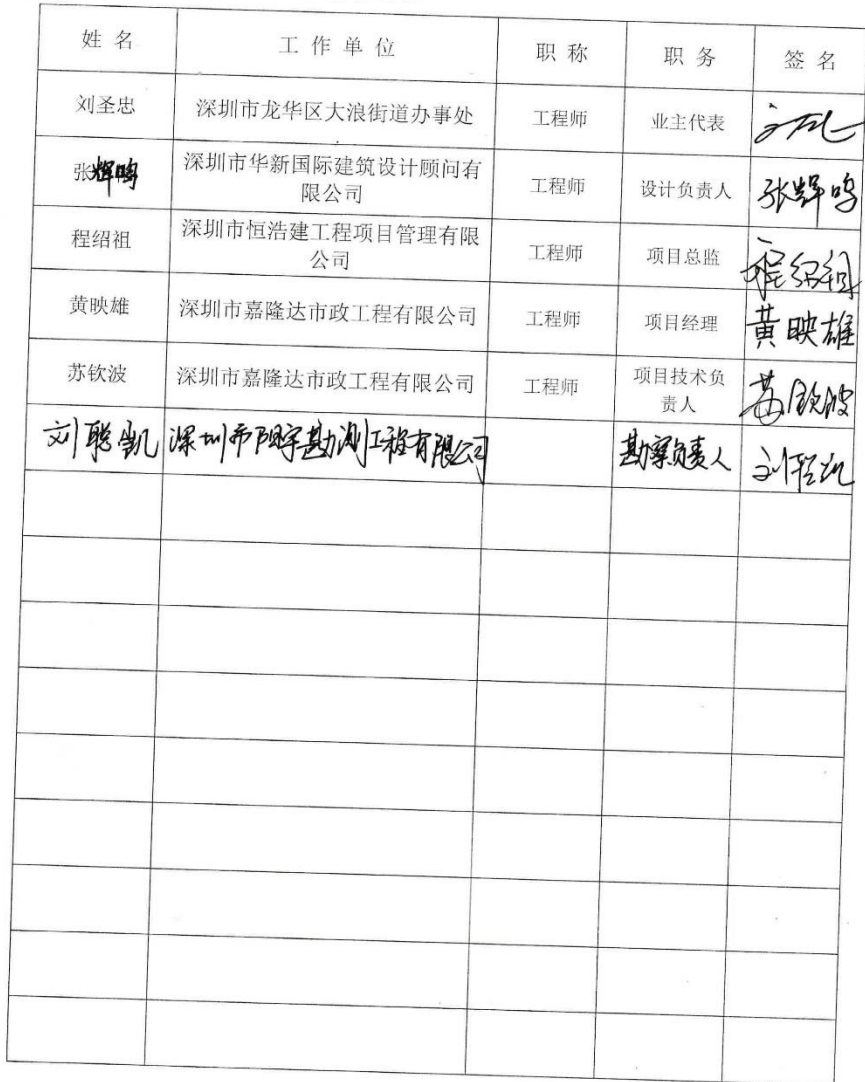 姓名 工作单位 职称 职务 签名
刘圣忠 深圳市龙华区大浪街道办事处 工程师 业主代表
张辉鸣 深圳市华新国际建筑设计顾问有
限公司 工程师 设计负责人 张辉鸣
程绍祖 深圳市恒浩建工程项目管理有限
公司 工程师 项目总监 程绍祖
黄映雄 深圳市嘉隆达市政工程有限公司 工程师 项目经理 黄映雄
苏钦波 深圳市嘉隆达市政工程有限公司 工程师 项目技术负
责人 苏钦波
刘聪凯 深圳市阳宇勘测工程有限公司 勘察负责人 刘聪凯